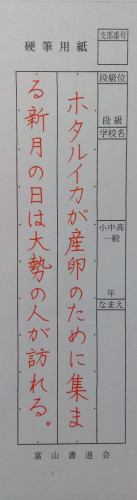 硬筆用紙
支部番号
段級位
段級
学校名
小中高
一般
年
なまえ
ホタルイカが産卵のために集ま
る新月の日は大勢の人が訪れる。
富山書道会